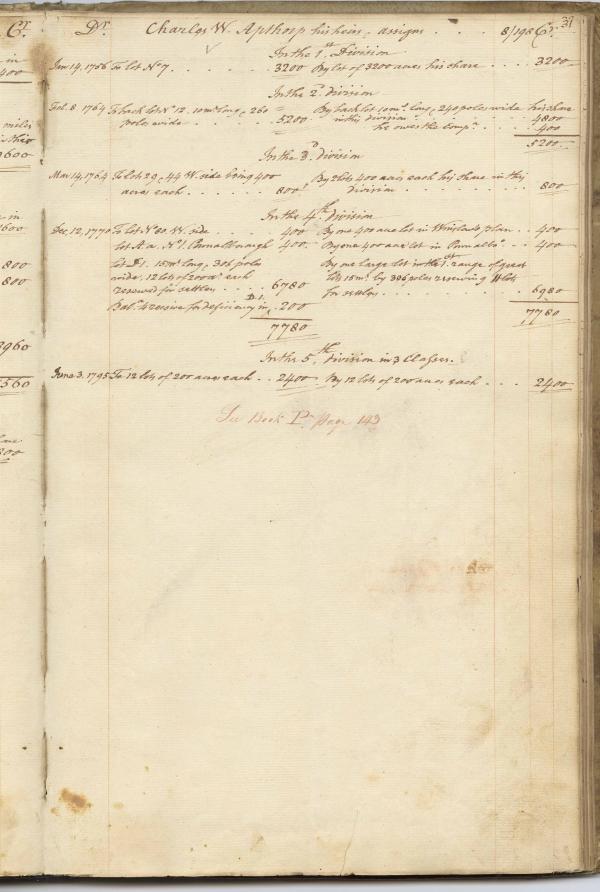 Cr
in
400
miles
9600
in
1600
800
800
3960
1560
200
37
Dr. Charles W. Apthorp his heirs & assigns . . . 8/192 Cr.
In the 1st Division
Jan 14, 1756 To Lot No 7 . . . . . . 3200 By lot of 3200 acres his share . . . . 3200
In the 2d division
Feb. 8. 1764 To back lot No 12. 10 mls long, 260 By back lot 10 ms. long, 240 poles wide his share
poles wide . . . . . 5200 in this division . . . . . . 4800
he owes the Compy. . . . 400
5200
In the 3d division
Mar 14, 1764 To Lots 29 & 44 W. side being 400 By 2 lots 400 acres each his share in this
acres each . . . . . . 800 division . . . . . . . 800
In the 4th division
Dec. 12, 1770 To lot No 20. W. side . . . . 400 By one 400 acre lot in Winslow's plan . . 400
lot No 1. Pownalborough 400 By one 400 acre lot in Pownalbo' . . 400
lot D 1. 15 ml long, 306 poles By one large lot in the 1st range of great
wide. 12 lots of 200 as. each lots 15 ms. by 306 poles reserving 11 lots
reserved for settlers . . . . 6780 for settlers . . . . . . . 6980
Bale. to receive for deficiency in D.1. 200
7780 7780
In the 5th division in 3 Classes.
June 3. 1795 To 12 lots of 200 acres each . . 2400 By 12 lots of 200 acres each . . . 2400
See Book P. page 143